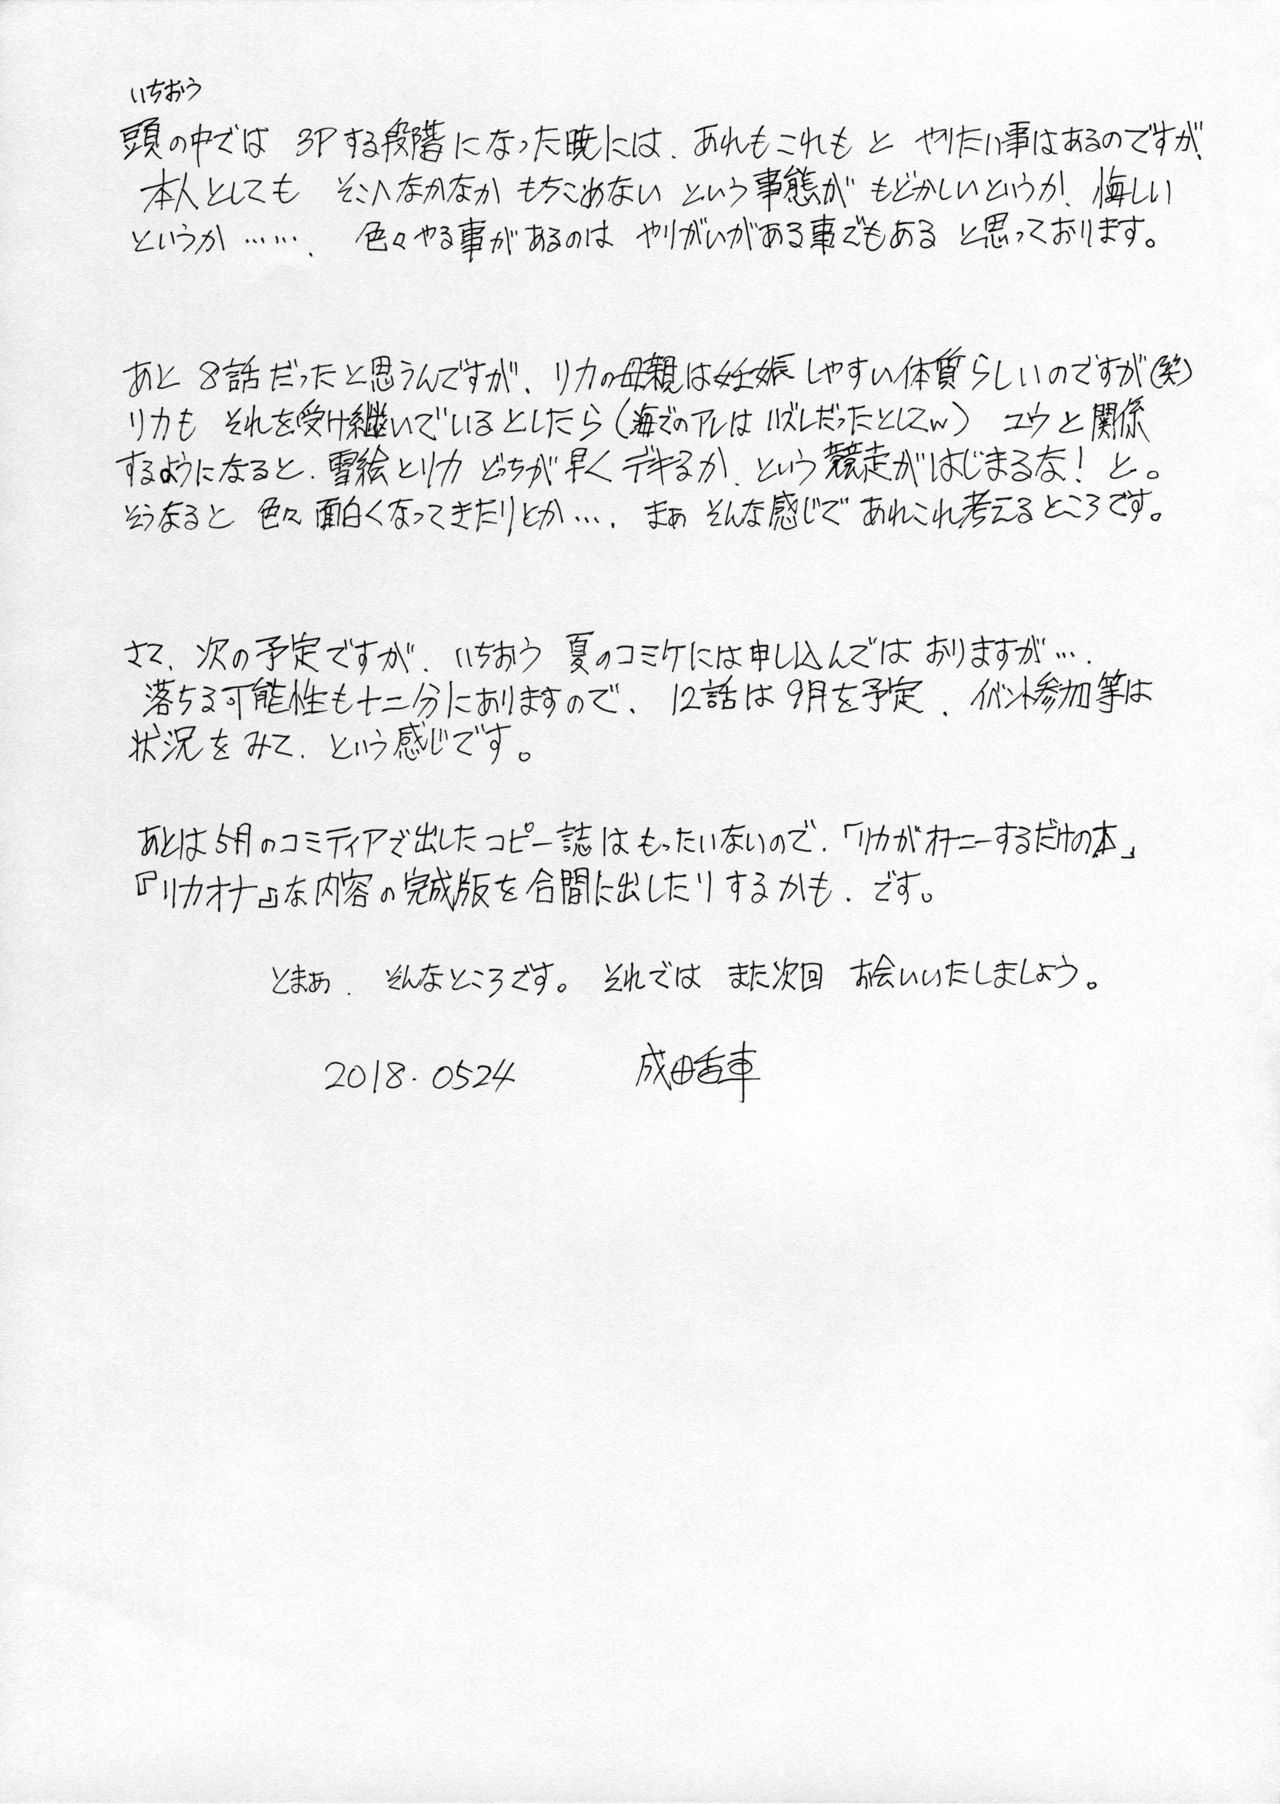 いちおう
頭の中では 3Pする段階になった暁には、あれもこれもと やりたい事はあるのですが、
本人としても そこへなかなか もちこめない という事態が もどかしいというか、悔しい
というか……、 色々やる事があるのは やりがいがある事でもある と思っております。
あと 8話だったと思うんですが、リカの母親は妊娠しやすい体質らしいのですが(笑)
リカも それを受け継いでいるとしたら(海でのアレは ハズレだったとしてw) ユウと関係
するようになると、雪絵とリカ どっちが早くデキるか、という競走がはじまるな!と。
そうなると 色々面白くなってきたりとか…、まぁ そんな感じで あれこれ考えるところです。
さて、次の予定ですが、いちおう 夏のコミケには申し込んでは おりますが…、
落ちる可能性も十二分にありますので、 12話は9月を予定、イベント参加等は
状況をみて、という感じです。
あとは5月のコミティアで出したコピー誌はもったいないので、「リカがオナニーするだけの本」
『リカオナ』な内容の完成版を合間に出したりするかも、です。
とまぁ、 そんなところです。それでは また次回 お会いいたしましょう。
2018.0524 成田舌車